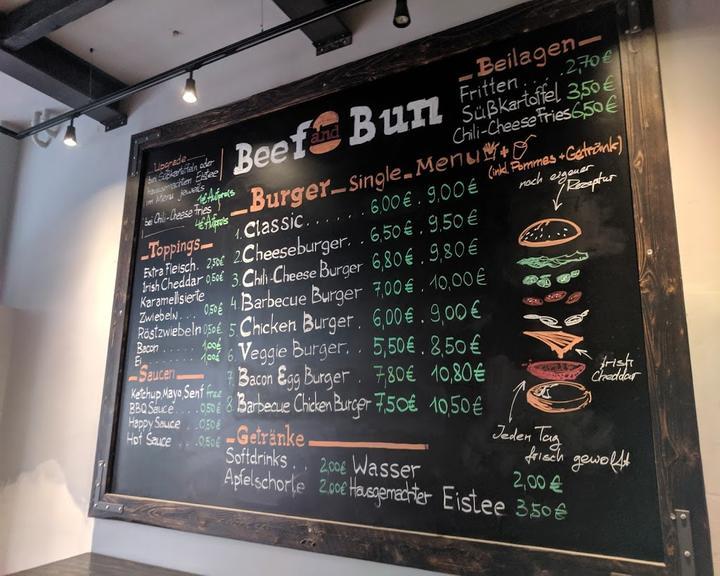 Beef and Bun
Upgrade
bei Süßkartoffeln oder
Hausgemachten Eistee
im Menü jeweils
1€ Aufpreis
bei Chili-Cheese Fries
4€ Aufpreis
Toppings
Extra Fleisch. 2,50€
Irish Cheddar 0,50€
Karamellisierte
Zwiebeln... 0,50€
Röstzwiebeln 0,50€
Bacon..... 1,00€
Ei....... 1,00€
Saucen
Ketchup, Mayo, Senf free
BBQ Sauce... 0,50€
Happy Sauce.. 0,50€
Hot Sauce... 0,50€
Burger Single Menü + (inkl. Pommes + Getränk)
1. Classic...... 6,00€. 9,00€
2. Cheeseburger.. 6,50€. 9,50€
3. Chili-Cheese Burger 6,80€. 9,80€
4. Barbecue Burger 7,00€. 10,00€
5. Chicken Burger. 6,00€. 9,00€
6. Veggie Burger... 5,50€. 8,50€
7. Bacon Egg Burger. 7,80€ 10,80€
8. Barbecue Chicken Burger 7,50€ 10,50€
Getränke
Softdrinks.. 2,00€ Wasser 2,00€
Apfelschorle 2,00€ Hausgemachter Eistee 3,50€
Beilagen
Fritten.... 2,70€
Süßkartoffel. 3,50€
Chili-Cheese Fries 6,50€
nach eigener
Rezeptur
Irish
Cheddar
Jeden Tag
frisch gewolft